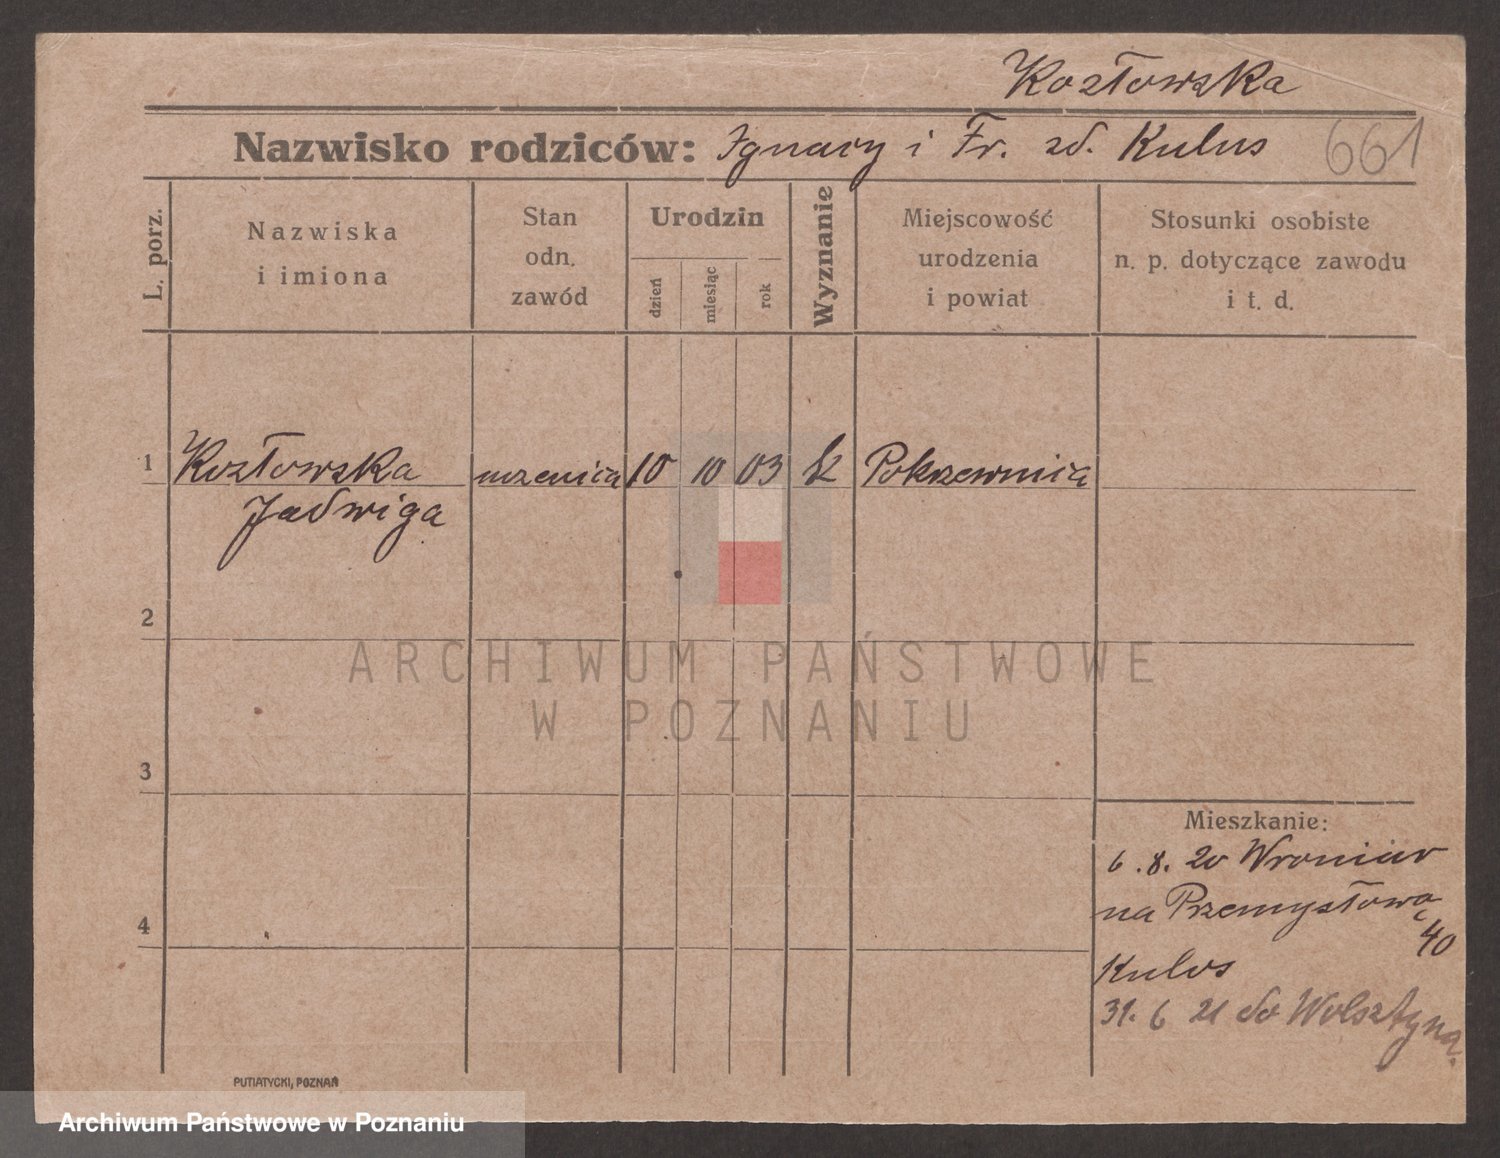 Kozłowska
Nazwisko rodziców: Ignacy i Fr. zd. Kulus
661
L. porz.
Nazwiska
i imiona
Stan
odn.
zawód
Urodzin
dzień
miesiąc
rok
Wyznanie
Miejscowość
urodzenia
i powiat
Stosunki osobiste
n. p. dotyczące zawodu
i t. d.
1
Kozłowska uczenica 10 10 03 k Pokrzewnica
Jadwiga
2
ARCHIWUM PAŃSTWOWE
W POZNANIU
3
Mieszkanie:
6.8.20 Wroniar
na Przemysłową
40
4
Kulus
31. 6 21 do Wolsztyna.
PUTIATYCKI, POZNAŃ
Archiwum Państwowe w Poznaniu